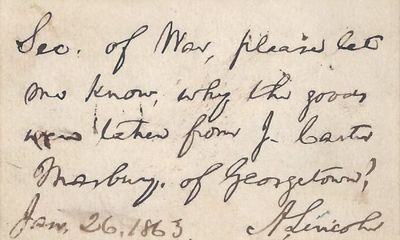 Sec. of War, please let
me know, why the goods
were taken from J. Carter
Marbury, of Georgetown?
Jan. 26, 1863 A. Lincoln